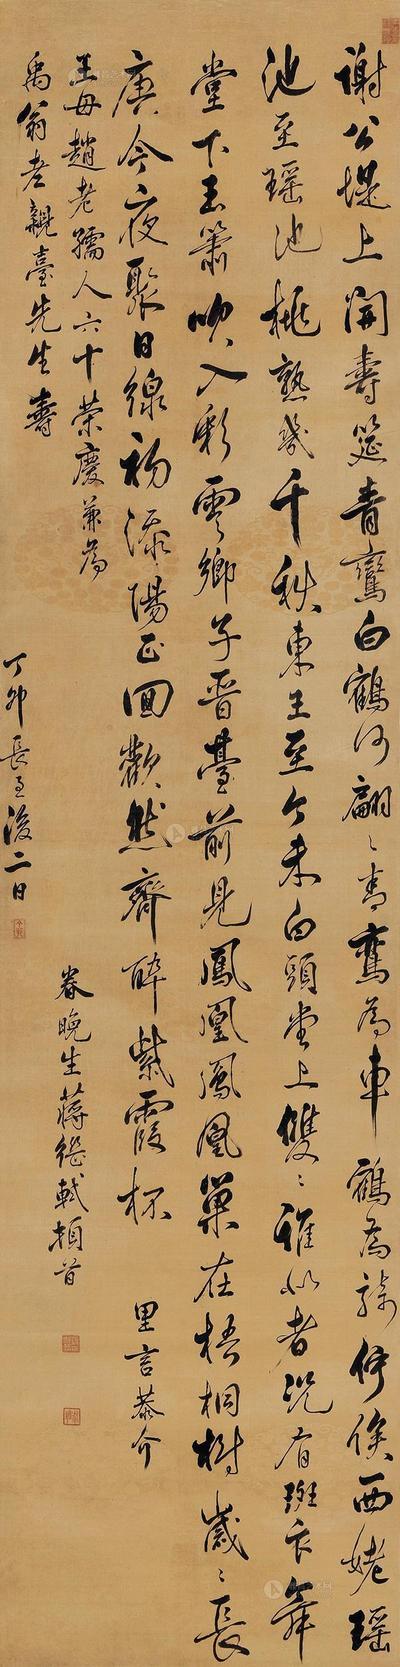 谢公堤上開壽筵青鸞白鶴何翩〻青鸞為車鶴為騎伊侯西姥瑶
池至瑶池桃熟幾千秋東王至今未白頭堂上雙〻誰似者況有斑衣舞
堂下玉簫吹入彩雲鄉子晋臺前見鳳凰鳳凰巢在梧桐樹歲〻長
庚今夜聚日線初添陽正回歡然齊醉紫霞杯
里言恭介
王母趙老孺人六十榮慶兼為
禹翁老親臺先生壽
眷晚生蔣繼軾頓首
丁卯長至後二日